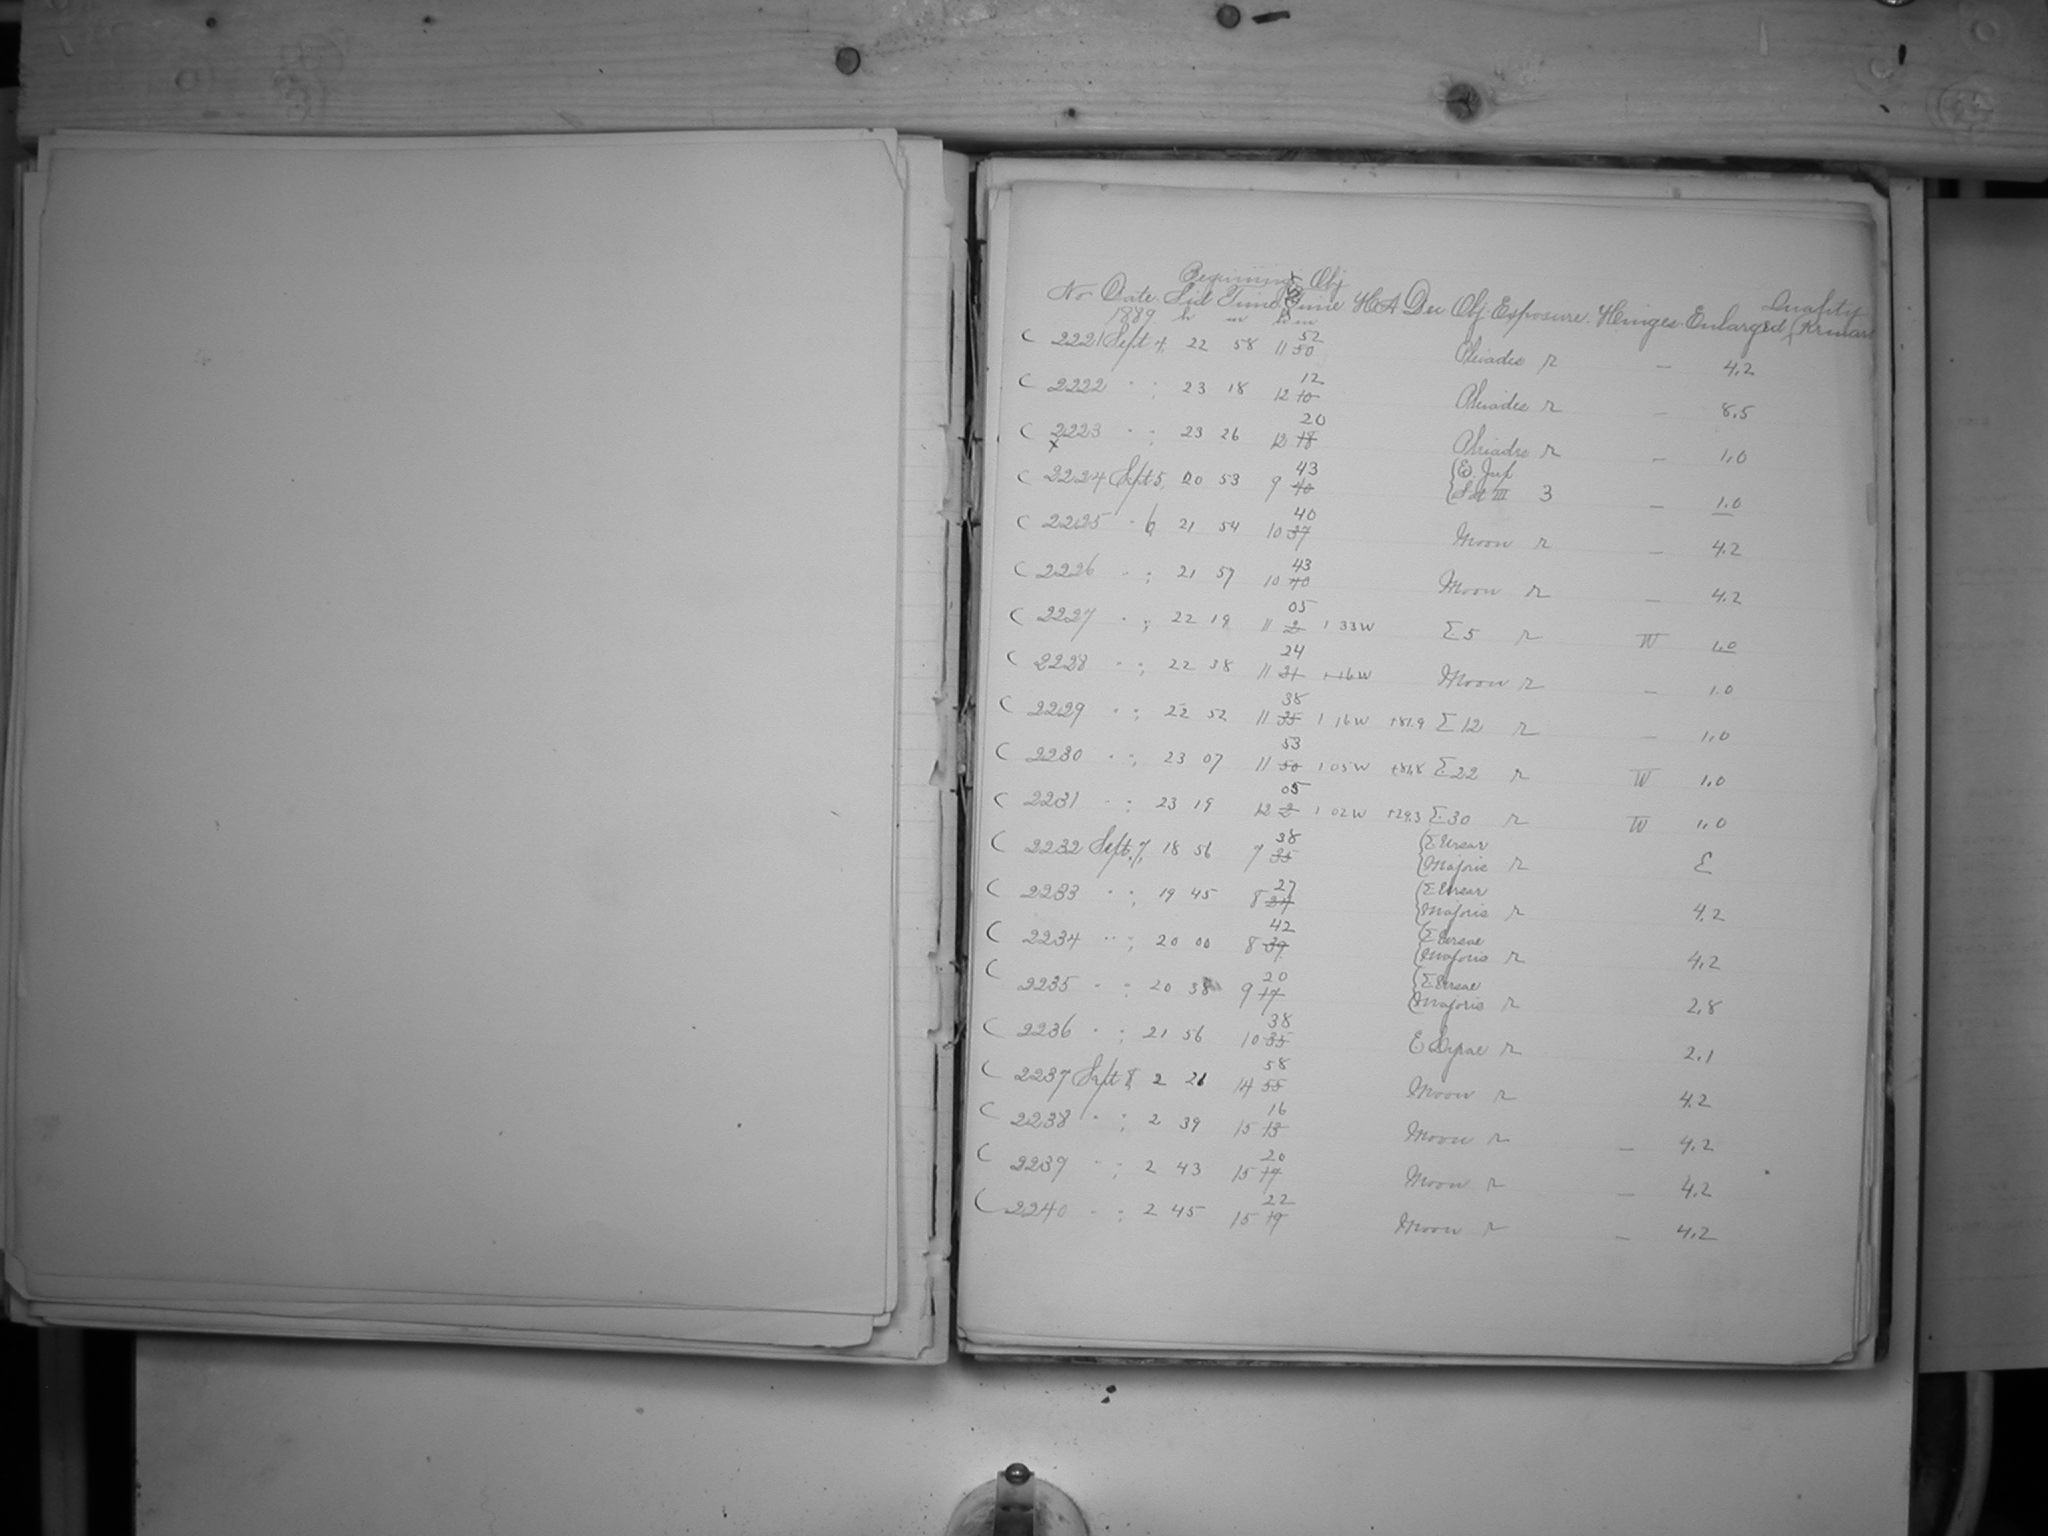 Beginning Obj
No Date Sid Time Time HA Dec Obj Exposure Hinges Enlarged Quality
1889 h m h m
C 2221 Sept 4, 22 58 11 50 52 Pleiades r — 4.2
C 2222 " ; 23 18 12 10 12 Pleiades r — 8.5
C 2223 " ; 23 26 12 18 20 Pleiades r — 1.0
x
C 2224 Sept 5, 20 53 9 40 43 { E. Jup
{ Sat III 3 — 1.0
C 2225 " 6, 21 54 10 37 40 Moon r — 4.2
C 2226 " ; 21 57 10 40 43 Moon r — 4.2
C 2227 " ; 22 19 11 2 05 1 33W Σ 5 r IV 1.0
C 2228 " ; 22 38 11 21 24 Moon r — 1.0
C 2229 " ; 22 52 11 35 38 1 16W +81.9 Σ 12 r — 1.0
C 2230 " ; 23 07 11 50 53 1 05W Σ 22 r IV 1.0
C 2231 " ; 23 19 12 2 05 1 02W +29.3 Σ 30 r IV 1.0
C 2232 Sept. 7, 18 56 7 35 38 { Σ Ursae
{ Majoris r E
C 2233 " ; 19 45 8 24 27 { Σ Ursae
{ Majoris r 4.2
C 2234 " ; 20 00 8 39 42 { Σ Ursae
{ Majoris r 4.2
C 2235 " ; 20 38 9 17 20 { Σ Ursae
{ Majoris r 2.8
C 2236 " ; 21 56 10 35 38 r 2.1
C 2237 Sept 8, 2 21 14 55 58 Moon r 4.2
C 2238 " ; 2 39 15 13 16 Moon r — 4.2
C 2239 " ; 2 43 15 17 20 Moon r — 4.2
C 2240 " ; 2 45 15 19 22 Moon r — 4.2